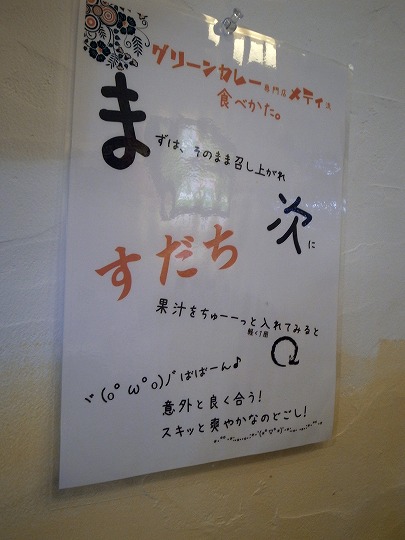 グリーンカレー専門店メティス
食べかた。
まずは、そのまま召し上がれ
次に
すだち
果汁をちゅーーっと入れてみると
軽く1周
ヾ(o゚ω゚o)ﾉ゙ ばばーん♪
意外と良く合う!
スキッと爽やかなのどごし!